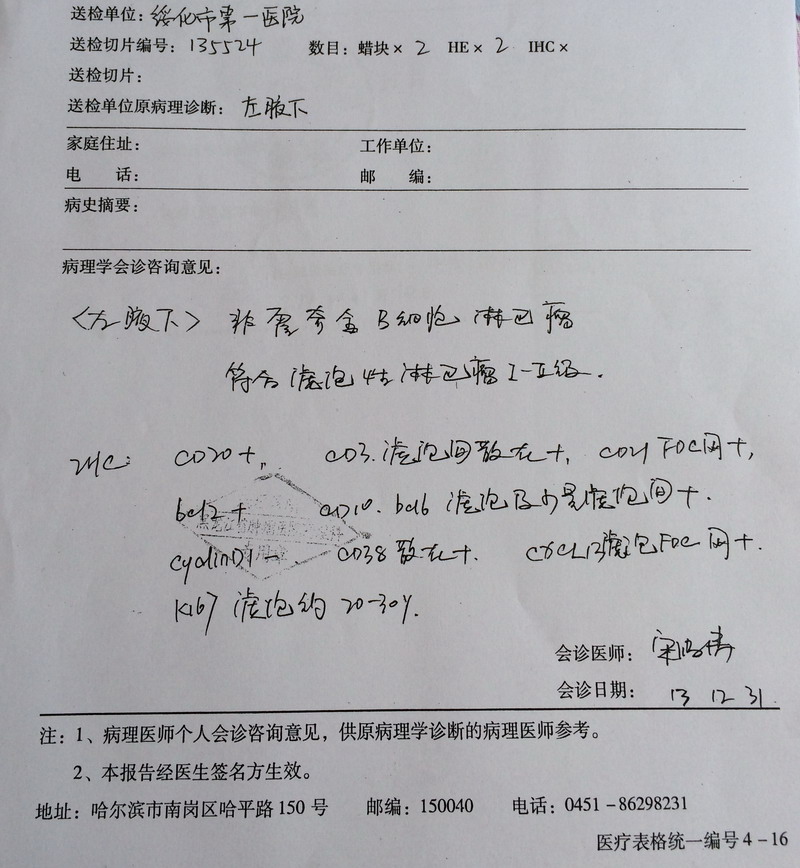 送检单位: 绥化市第一医院
送检切片编号: 135524 数目: 蜡块× 2 HE× 2 IHC×
送检切片:
送检单位原病理诊断: 左腋下
家庭住址: 工作单位:
电 话: 邮 编:
病史摘要:
病理学会诊咨询意见:
<左腋下> 非霍奇金B细胞淋巴瘤
符合滤泡性淋巴瘤I-II级.
IHC: CD20+, CD3.滤泡间散在+, CD21 FDC网+,
bcl2+ CD10. bcl6 滤泡及少量滤泡间+.
cyclinD1- CD38散在+. CXCL13滤泡FDC网+.
Ki67 滤泡约20-30%.
会诊医师:
会诊日期: 13 12 31.
注: 1、病理医师个人会诊咨询意见，供原病理学诊断的病理医师参考。
2、本报告经医生签名方生效。
地址: 哈尔滨市南岗区哈平路150号 邮编: 150040 电话: 0451-86298231
医疗表格统一编号4-16